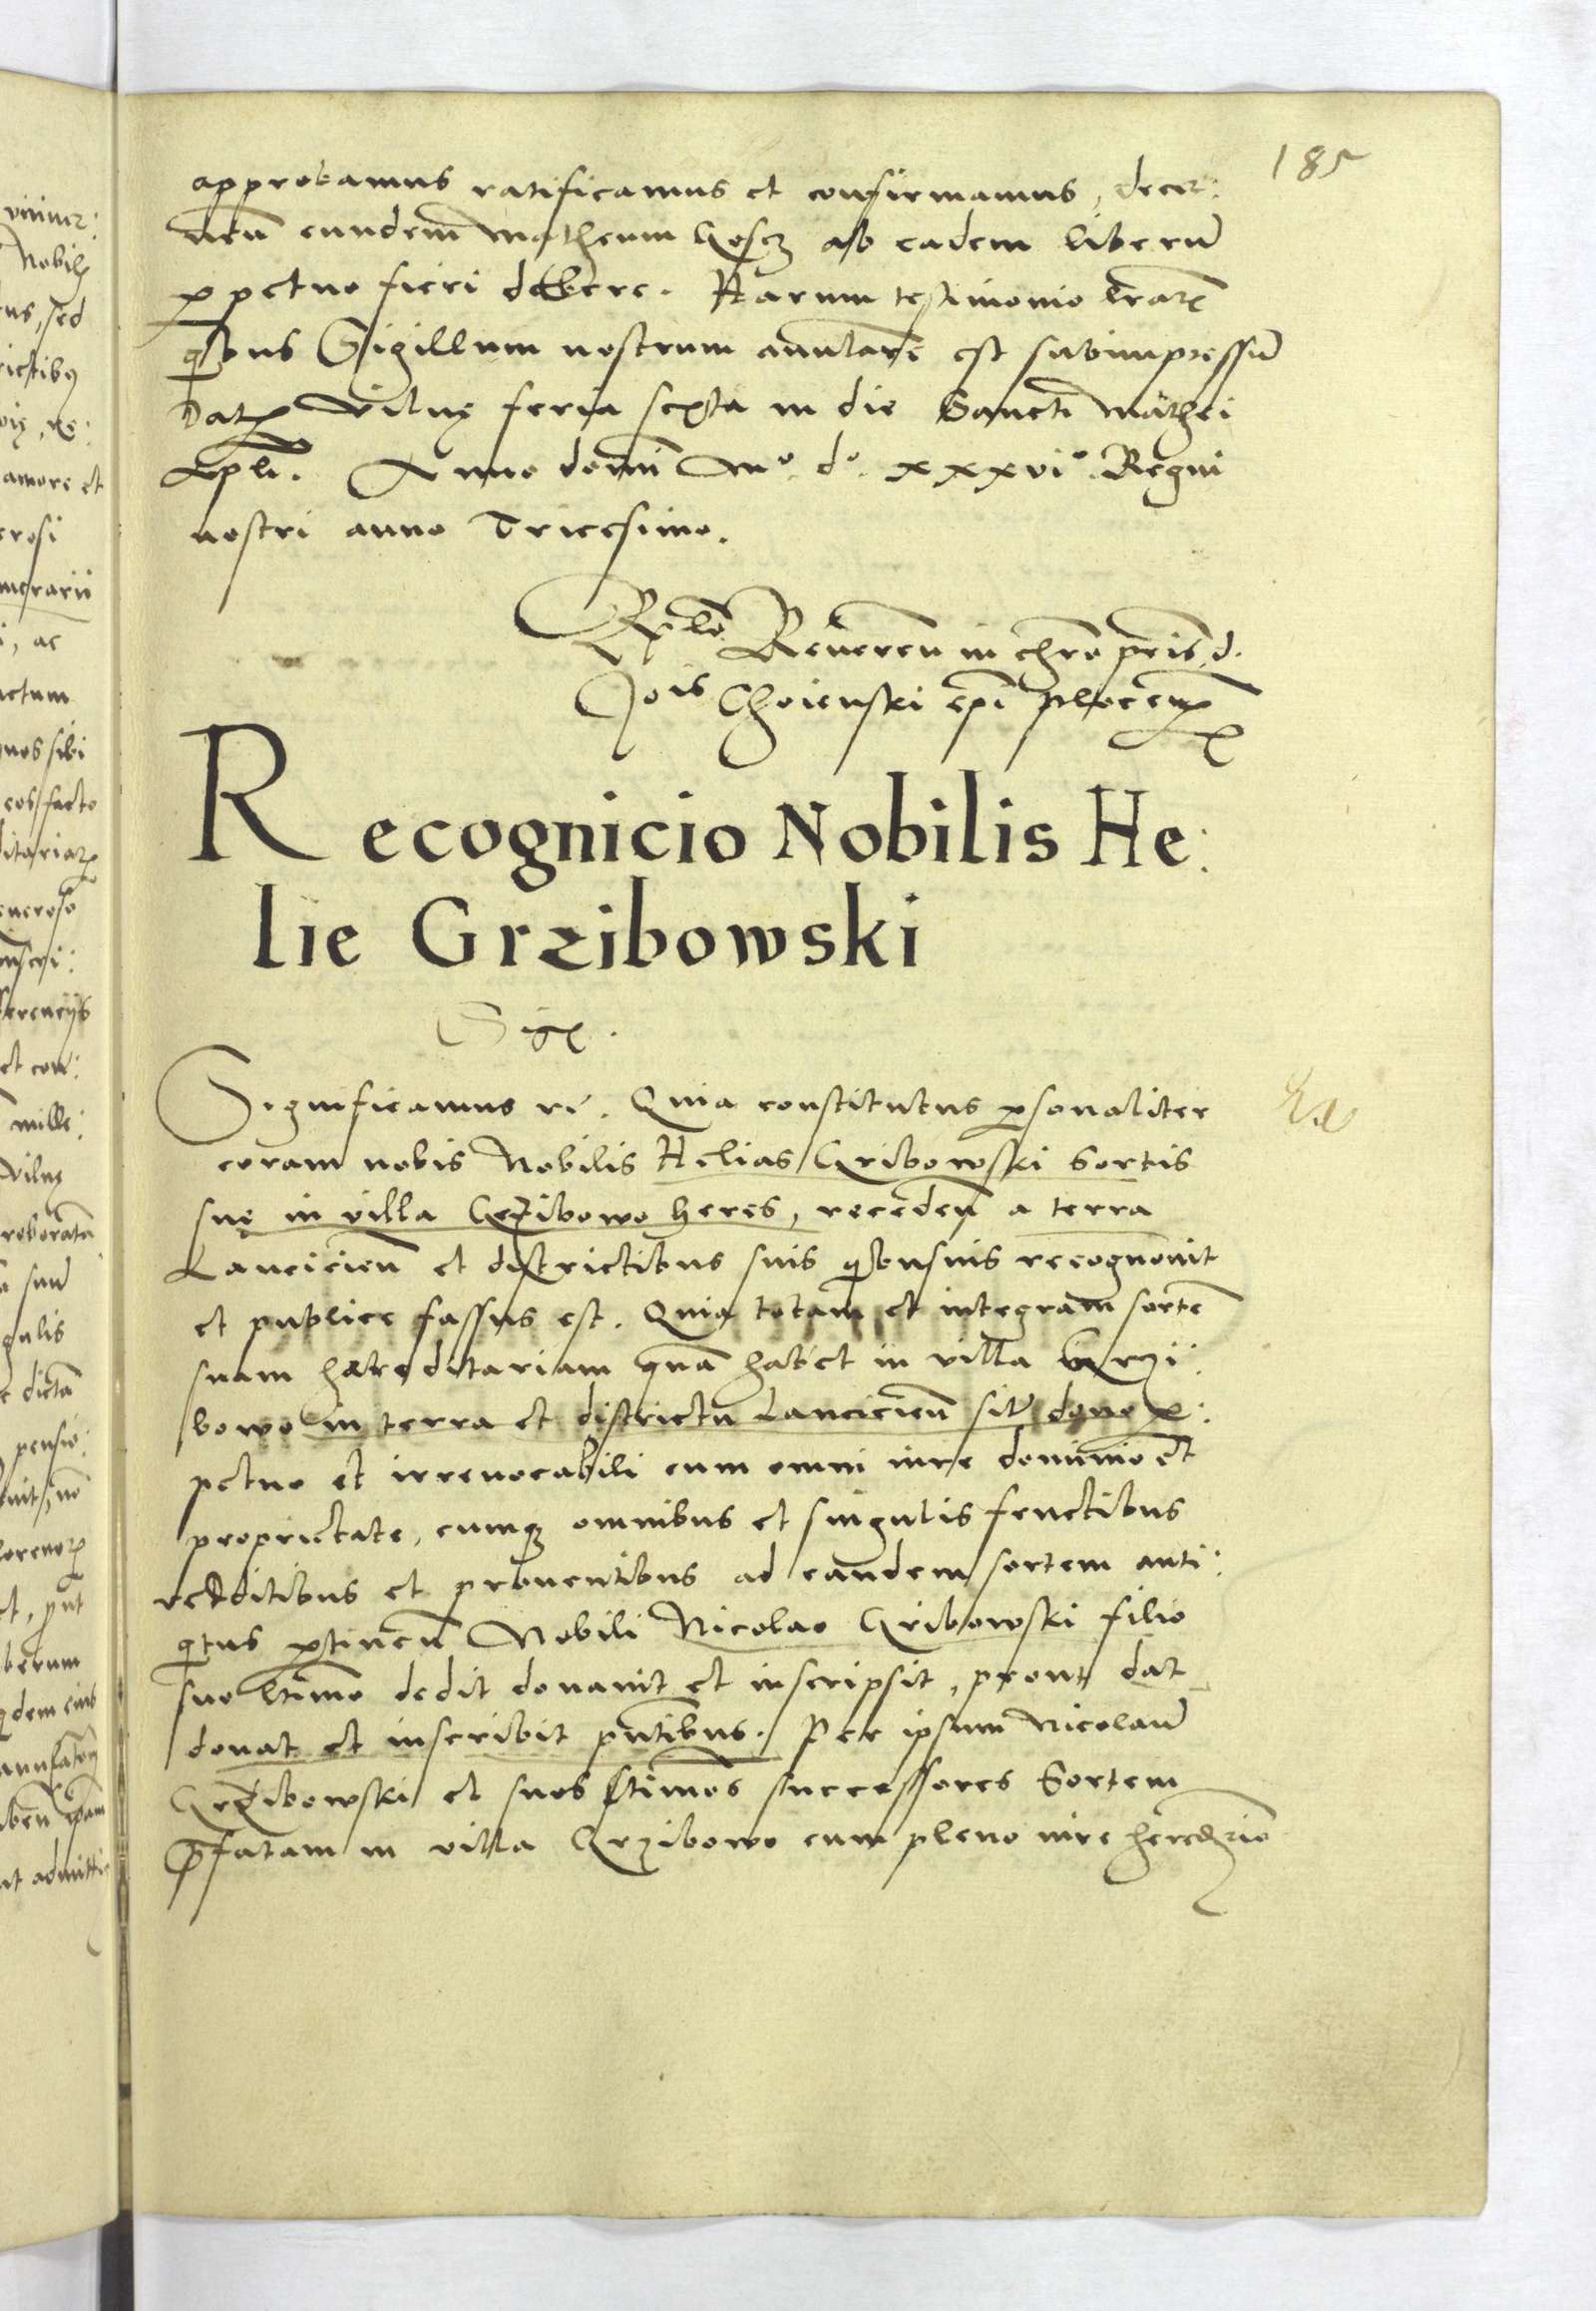 185
approbamus ratificamus et confirmamus, decer:
neñ eundem Matheum Goscz ab eadem liberũ
ꝑpetuo fieri debere. Harum testimonio lrarꝫ
quibus Sigillum nostrum annulare est subimpressũ
Datꝫ Vilnę feria sexta in die Sancti Mathei
Apli. Anno domĩ Mº dº xxxviº Regni
nostri anno Tricesimo.
Relo Reveren in chro pris d.
Jois Choienski epi plocenꝫ
Recognicio Nobilis He:
lie Grzibowski
Sigꝫ.
Significamus rc̃. Quia constitutus ꝑsonaliter
coram nobis Nobilis Helias Gribowski Sortis
suę in villa Grzibowo heres, recedeñ a terra
Lancicieñ et districtibus suis quibusuis recognovit
et publice fassus est. Quia totam et integram sortẽ
suam haereditariam quã habet in villa Grzi:
bowo in terra et districtu Lancicieñ sitꝫ dono ꝑ:
petuo et irrevocabili cum omni iure dominio et
proprietate, cumqꝫ omnibus et singulis fructibus
redditibus et proventibus ad eandem sortem anti:
quitus ꝑtineñ Nobili Nicolao Gribowski filio
suo ltimo dedit donavit et inscripsit, prout dat
donat et inscribit pñtibus. Per ipsum Nicolaũ
Grzibowski et suos ltimos successores Sortem
p̃fatam in villa Grzibowo cum pleno iure heredrio